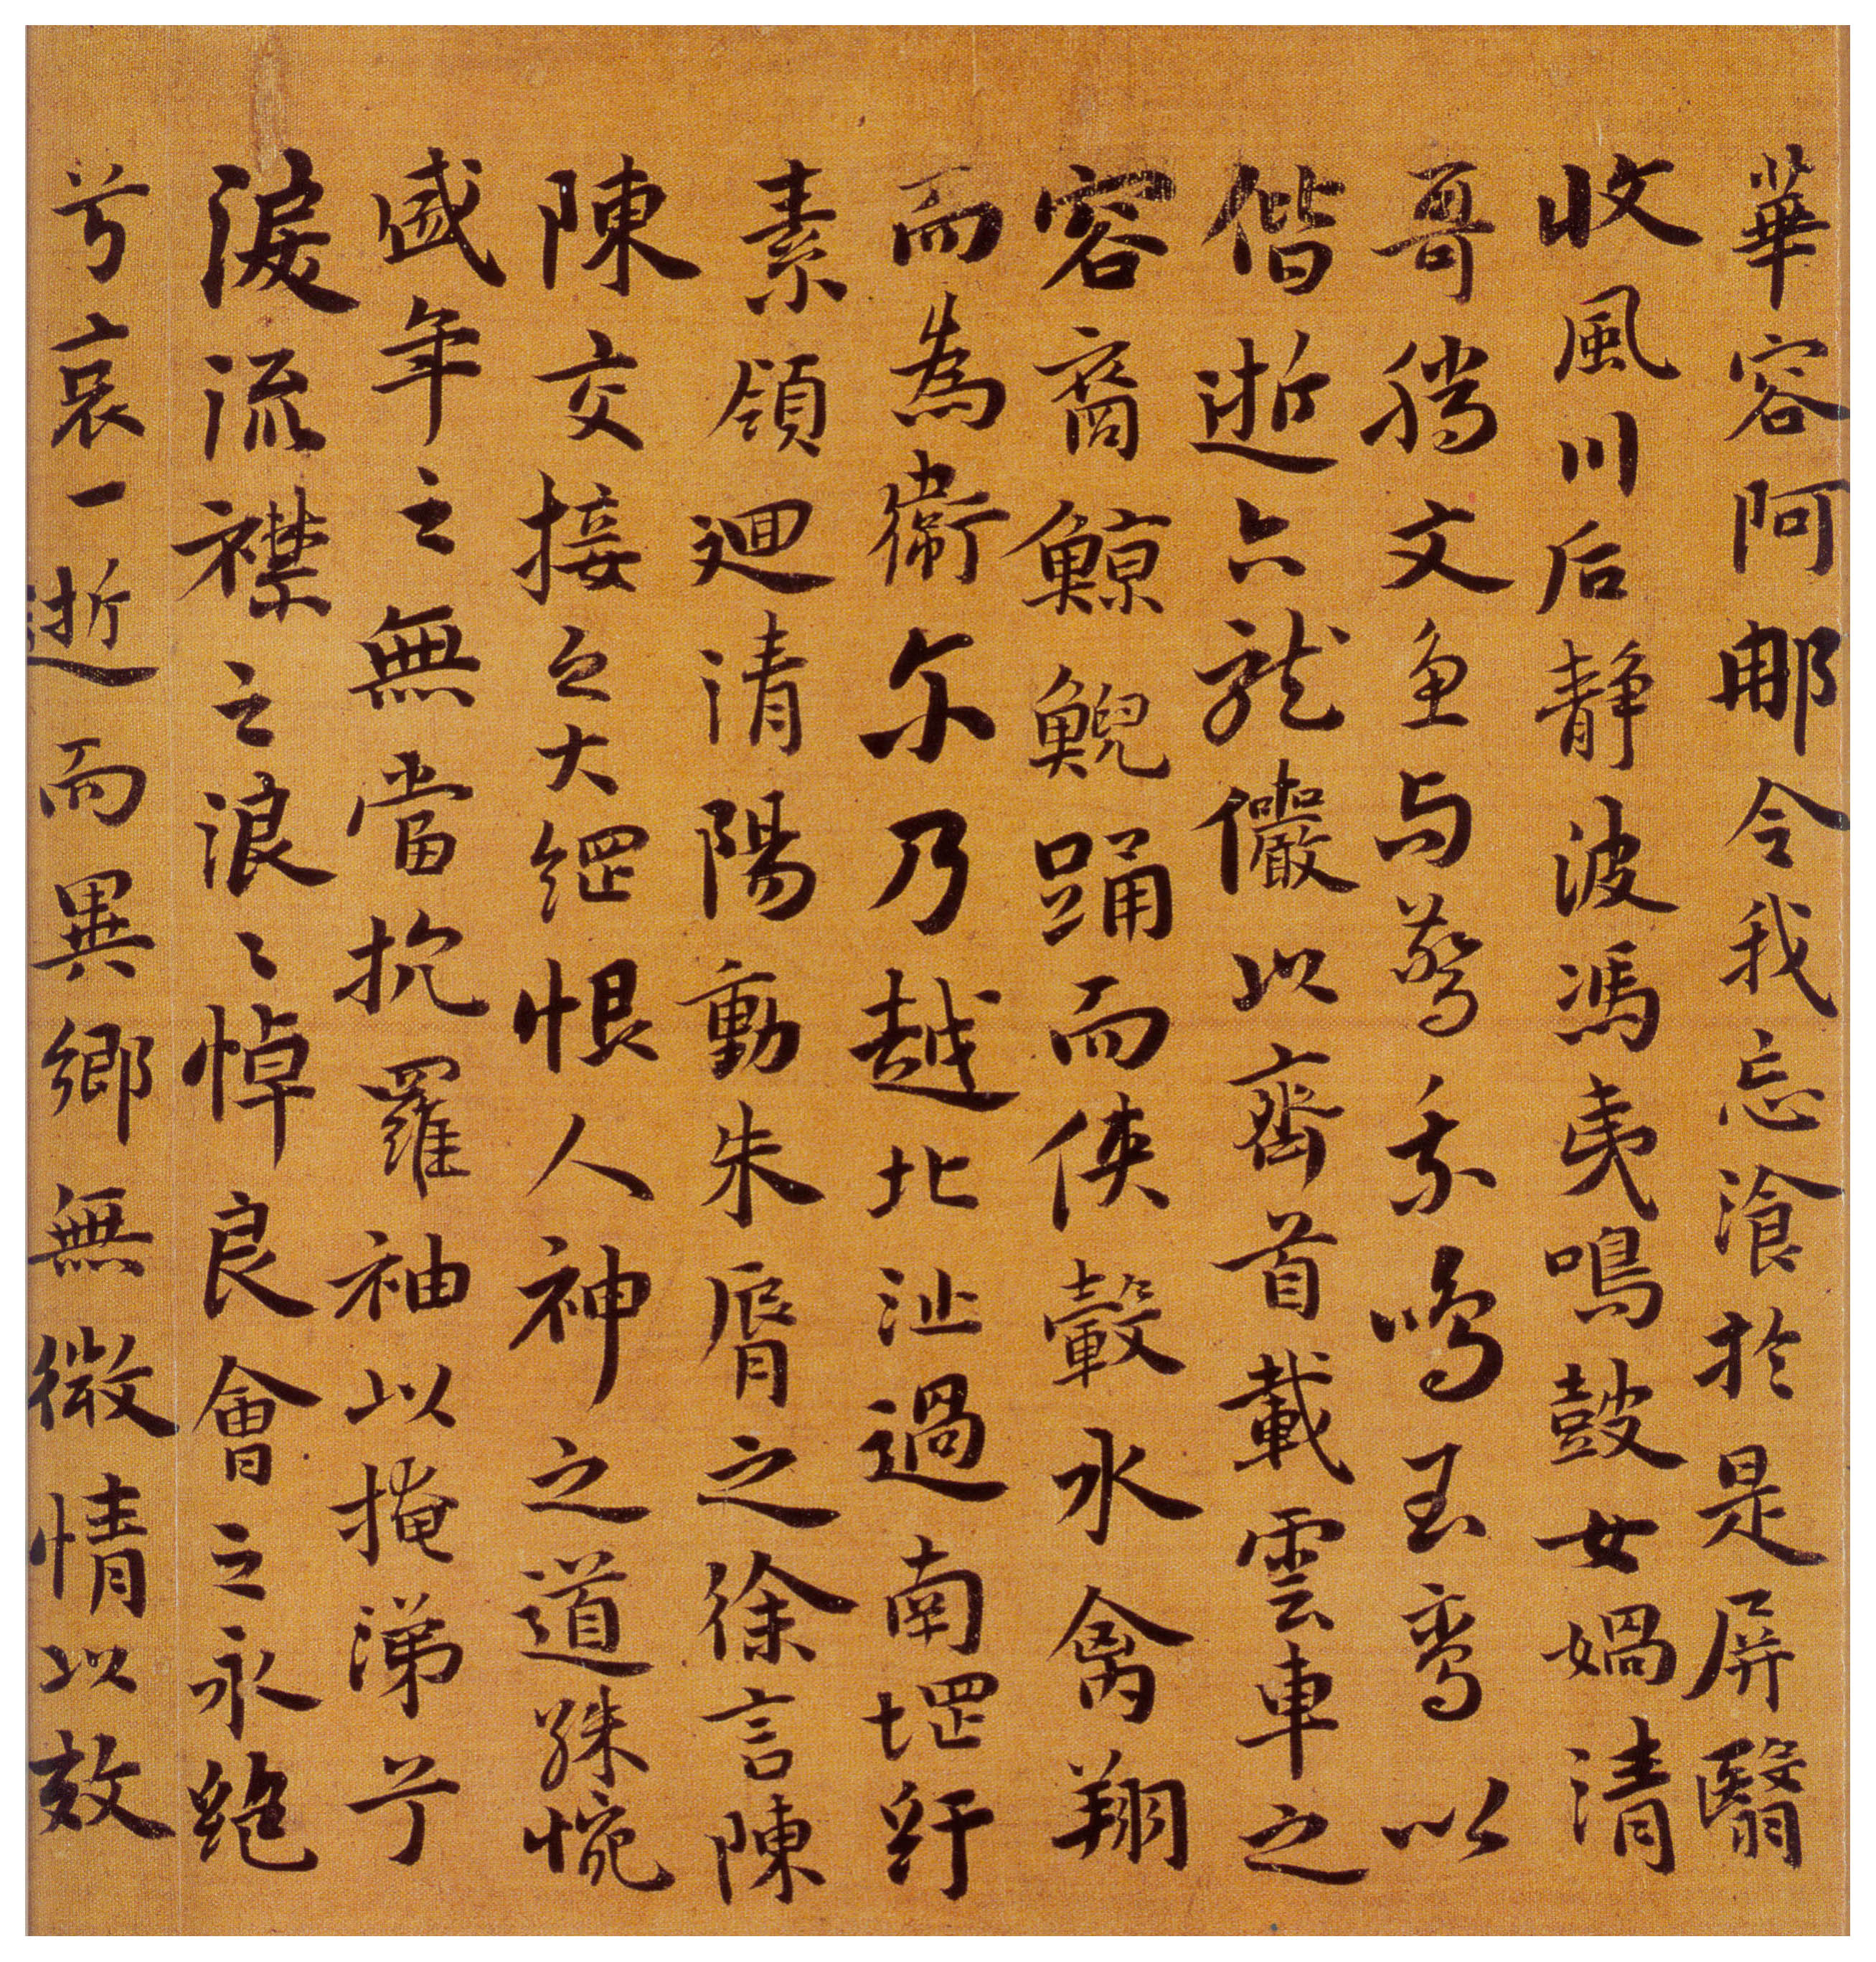 華容阿那令我忘飡於是屏翳
收風川后靜波馮夷鳴鼓女媧清
哥騰文魚与警乘鳴玉鸾以
偕逝六龍儼以齊首載雲車之
容裔鯨鯢踊而俠轂水禽翔
而為衛尓乃越北沚過南堽紆
素領迴清陽動朱脣之徐言陳
陳交接之大綱恨人神之道殊惋
盛年之無當抗羅袖以掩涕兮
淚流襟之浪〻悼良會之永絕
兮哀一逝而異鄉無微情以效